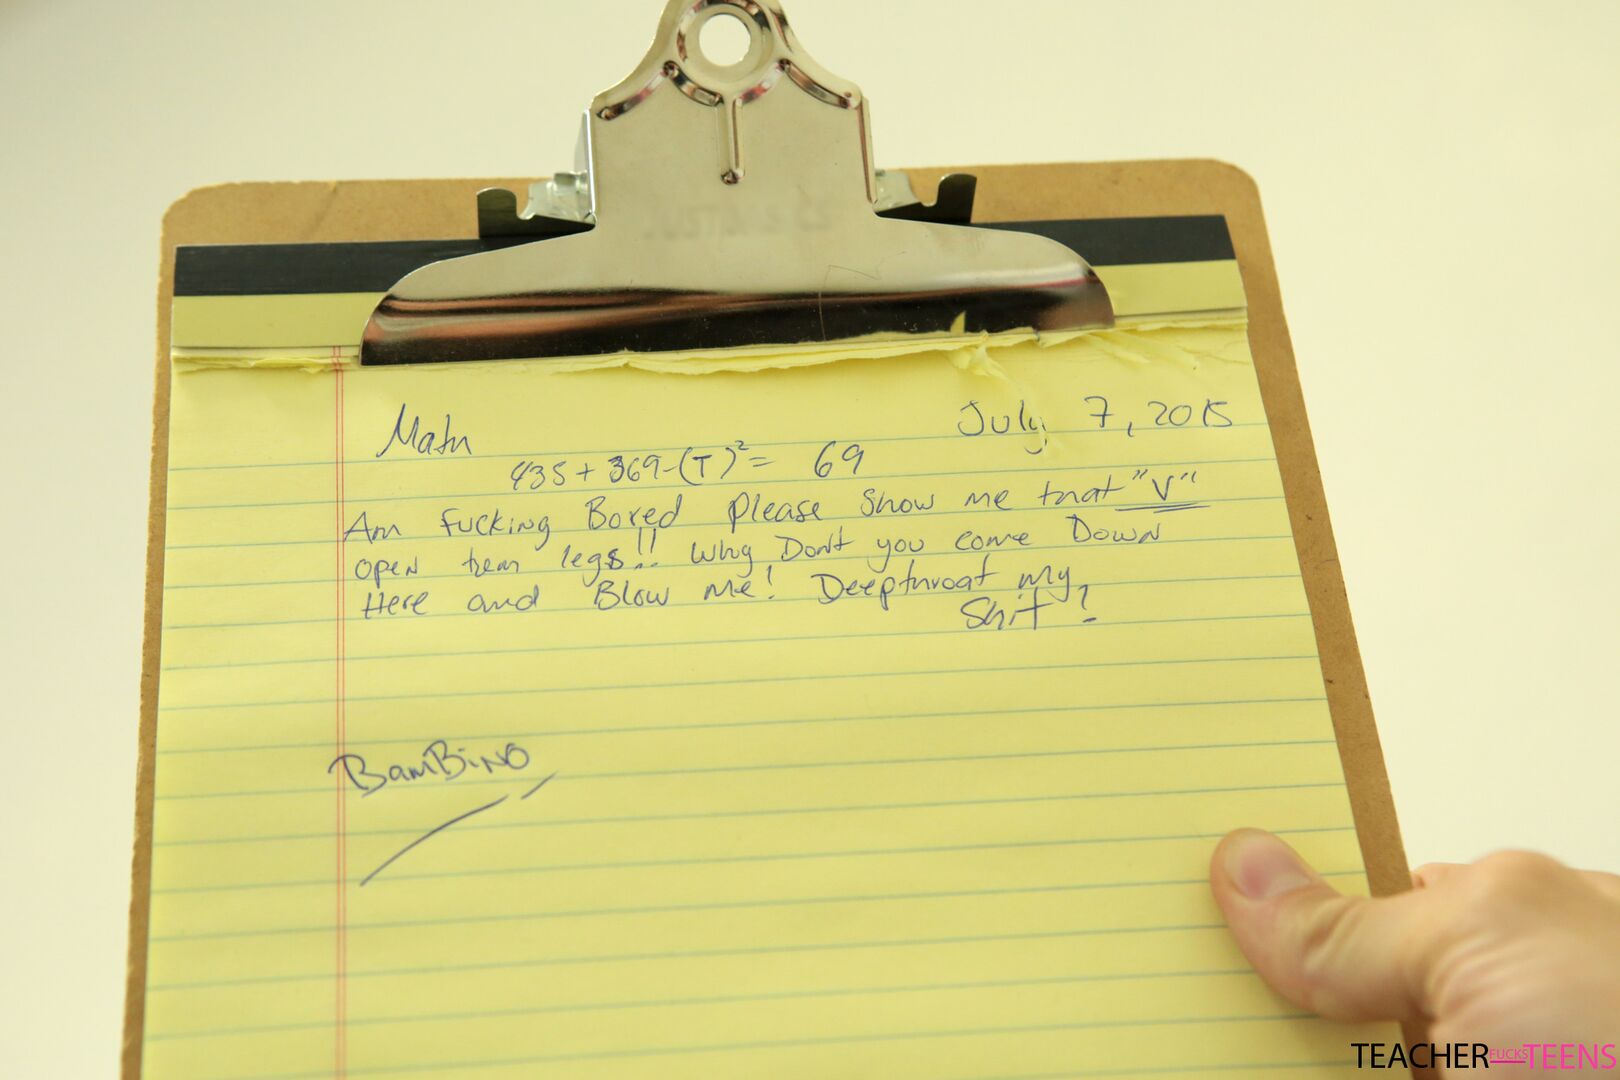 Math July 7, 2015
435 + 369 - (T)² = 69
Am fucking Bored Please Show me that "V"
open them legs!! Why Don't you come Down
Here and Blow me! Deepthroat my
Shit?
BamBiNo
TEACHER FUCKS TEENS